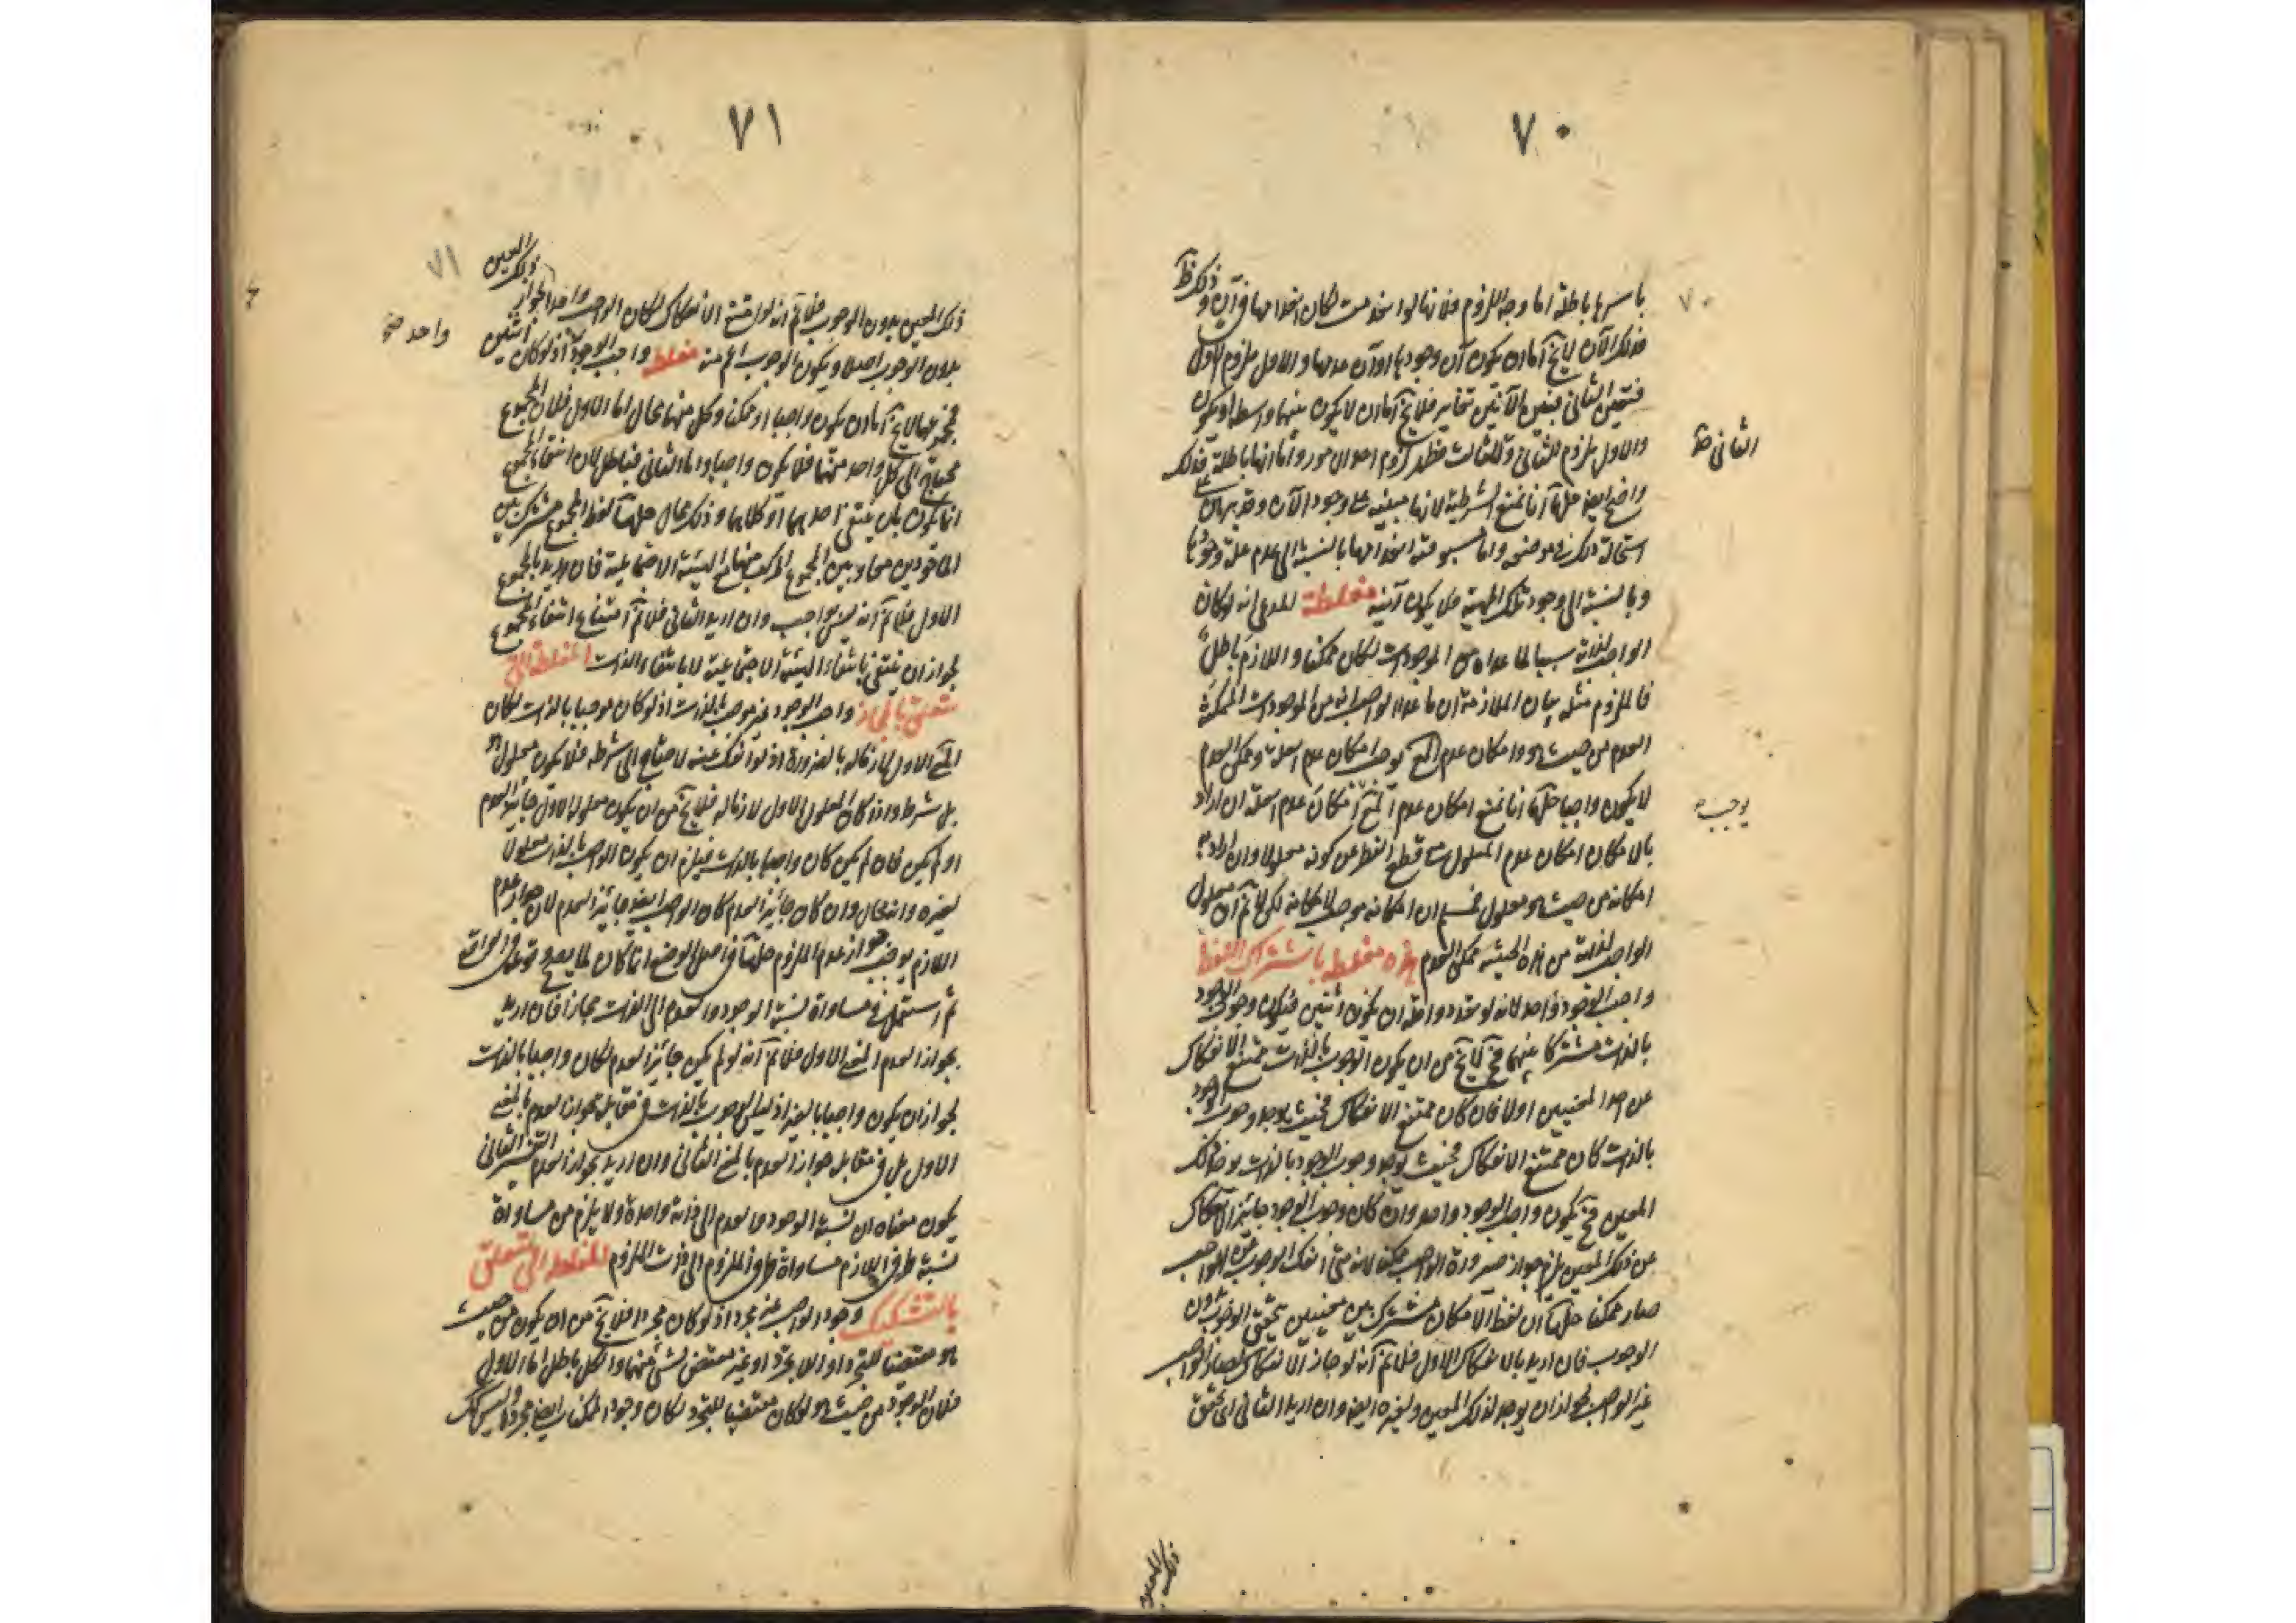 ٧٠
باسرها باطلة اما وجه اللزوم فلانها لو انخدمت لكان انعدامها فى آن وذلك ظ
فذلك الآن لا يخ اما ان يكون آن وجودها او آن عدمها والاول ملزوم للاول
فتعين الثانى فبين الآنين تغاير فلا يخ اما ان لا يكون بينهما واسطة او يكون
والاول ملزوم للثانى والثالث فظهر لزوم احد الامور واما انها باطلة فذلك
الثانى
واضح ايضا حلها انا نمنع الشرطية لانها مبنية على وجود الآن وقد برهن على
استحالة ذلك فى موضعه واما مسبوقية انعدامها بالنسبة الى عدم علة وجودها
وبالنسبة الى وجود تلك المهية فلا يكون آنية مغلطة المدعى انه لو كان
الواجب لذاته سببا لما عداه من الموجودات لكان ممكنا واللازم باطل
فالملزوم مثله بيان الملازمة ان ما عدا الواجب لذاته من الموجودات الممكنة
العدم من حيث هو وامكان عدم المع يوجب امكان عدم العلة وممكن العدم
لا يكون واجبا حلها انا نمنع امكان عدم المع امكان عدم العلة ان اراد
يوجب
بالامكان امكان عدم المعلول مع قطع النظر عن كونه معلولا وان اراد به
امكانه من حيث هو معلول فمسلم ان امكانه موجب لامكانه لكن لا نم ان معلول
الواجب لذاته من هذه الحيثية ممكن العدم هذه مغلطة باشتراك اللفظ
واجب الوجود واحد لانه لو تعدد واقله ان يكون اثنين فيكون وجوب الوجود
بالذات مشتركا بينهما فح لا يخ من ان يكون الوجوب بالذات ممتنع الانفكاك
عن احد المعنيين او لا فان كان ممتنع الانفكاك فحيث يوجد وجوب الوجود
بالذات كان ممتنع الانفكاك فحيث يوجد وجوب الوجود بالذات يوجد ذلك
المعين فح يكون واجب الوجود واحد وان كان وجوب الوجود جائز الانفكاك
عن ذلك المعين يلزم جواز صيرورة الواجب ممكنا لانه متى انفك الوجوب عن الواجب
صار ممكنا حلها ان لفظ الامكان مشترك بين معنيين تحقق الوجوب دون
الوجوب فان اريد بالانفكاك الاول فلا نم انه لو جاز الانفكاك لصار الواجب
غير الواجب لجواز ان يوجد لذلك المعين ولغيره ايضا وان اريد الثانى اى تحقق
٧١
ذلك المعين
ذلك المعين بدون الوجوب فلا نم انه لو امتنع الانفكاك لكان الواجب واحدا لجواز
بدون الوجوب اصلا ويكون الوجوب اعم منه مغلطة واجب الوجود اذ لو كان اثنين
واحد
فمجموعهما لا يخ اما ان يكون واجبا او ممكنا وكل منهما محال اما الاول فلان المجموع
محتاج الى كل واحد منهما فلا يكون واجبا واما الثانى فباطل لان انتفاء المجموع
انما يكون بان ينتفى احدهما او كلاهما وذلك محال حلها لفظ المجموع مشترك بين
الماخوذين معا وبين المجموع المركب منهما مع الهيئة الاجتماعية فان اريد بالمجموع
الاول فلا نم انه ليس بواجب وان اريد الثانى فلا نم امتناع انتفاء المجموع
لجواز ان ينتفى بانتفاء الهيئة الاجتماعية لا بانتفاء الذات المغلطة التى
تتعلق بالمجاز واجب الوجود غير موجب بالذات اذ لو كان موجبا بالذات لكان
المع الاول لازما له بالضرورة اذ لو انفك عنه لاحتاج الى شرط فلا يكون معلولا
بل شرط واذا كان المعلول الاول لازما له فلا يخ من ان يكون معلوله الاول جائز العدم
او لم يكن فان لم يكن كان واجبا بالذات فيلزم ان يكون الواجب بالذات معلولا
لغيره وانه محال وان كان جائز العدم كان الواجب ايضا جائز العدم لان جواز عدم
اللازم يوجب جواز عدم الملزوم حلها فى اصل الوضع انما كان لما يصح وقوعه فى الواقع
ثم استعمل فى مساواة نسبة الوجود والعدم الى الذات مجازا فان اريد
بجواز العدم المعنى الاول فلا نم انه لو لم يكن جائز العدم لكان واجبا بالذات
لجواز ان يكون واجبا بالغير اذ ليس الوجوب بالذات فى مقابل جواز العدم بالمعنى
الاول بل فى مقابل جواز العدم بالمعنى الثانى وان اريد بجواز العدم التفسير الثانى
يكون معناه ان نسبة الوجود والعدم الى ذاته واحدة ولا يلزم من مساواة
نسبة طرفى اللازم مساواة طرفى الملزوم الى ذات الملزوم المغلطة التى تتعلق
بالتشكيك وجود الواجب غير مجرد اذ لو كان مجردا فلا يخ من ان يكون من حيث
هو مقتضيا للتجرد او اللاتجرد او غير مقتض لشئ منهما والكل باطل اما الاول
فلان الوجود من حيث هو لو كان مقتضيا للتجرد لكان وجود الممكنات ايضا مجردا وليس كك
ذلك المعين